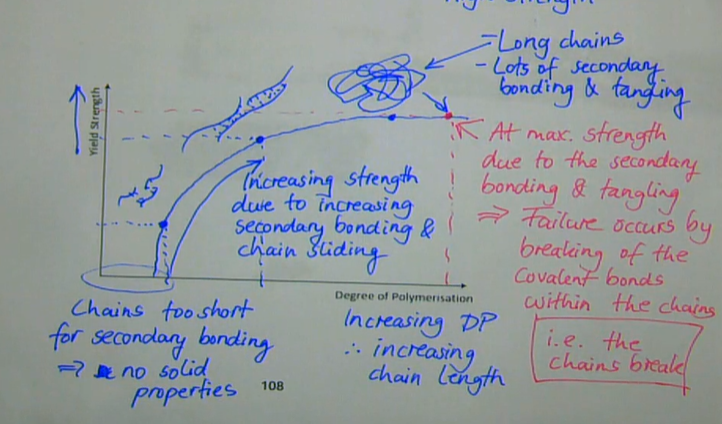 - Long chains
- Lots of secondary
bonding & tangling
Yield Strength
At max. strength
due to the secondary
bonding & tangling
⇒ Failure occurs by
breaking of the
Covalent bonds
within the chains
i.e. the
chains break
Increasing strength
due to increasing
secondary bonding &
chain sliding
Degree of Polymerisation
Chains too short
for secondary bonding
⇒ no solid
properties
108
Increasing DP
∴ increasing
chain length